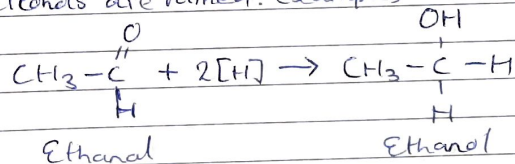 OH
O
CH3-C + 2[H] → CH3-C-H
H H
Ethanal Ethanol